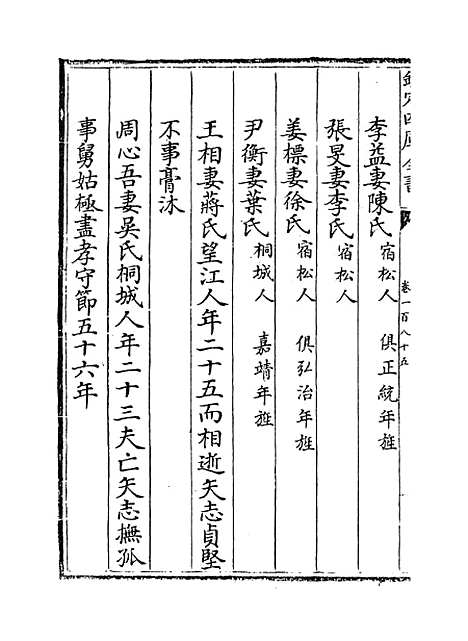 欽定四庫全書
卷一百八十五
李益妻陳氏宿松人 俱正統年旌
張旻妻李氏宿松人
姜標妻徐氏宿松人 俱弘治年旌
尹衡妻葉氏桐城人 嘉靖年旌
王相妻蔣氏望江人年二十五而相逝矢志貞堅
不事膏沐
周心吾妻吳氏桐城人年二十三夫亡矢志撫孤
事舅姑極盡孝守節五十六年